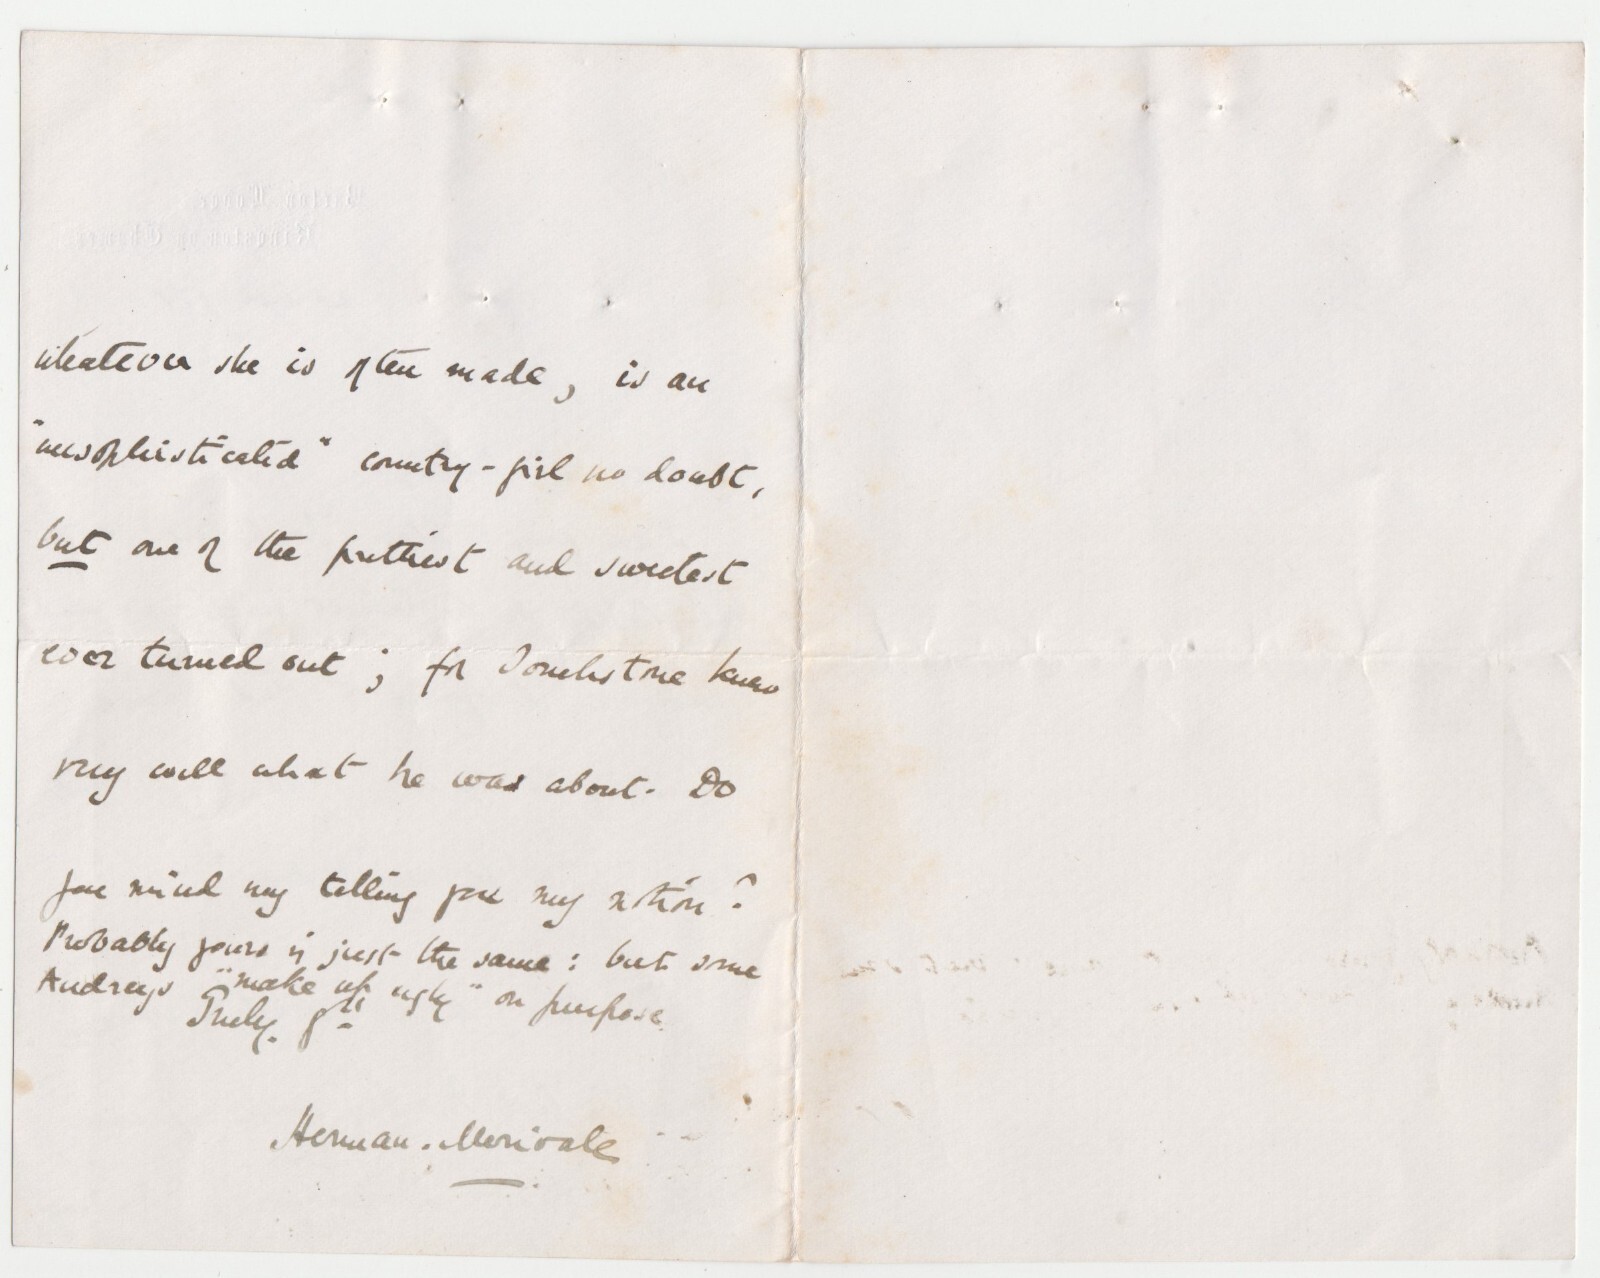 whatever she is often made, is an
"unsophisticated" country-girl no doubt,
but one of the prettiest and sweetest
ever turned out; for Touchstone knew
very well what he was about. Do
you mind my telling you my notion?
Probably yours is just the same: but some
Audreys "make up ugly" on purpose
Truly yrs
Herman Merivale